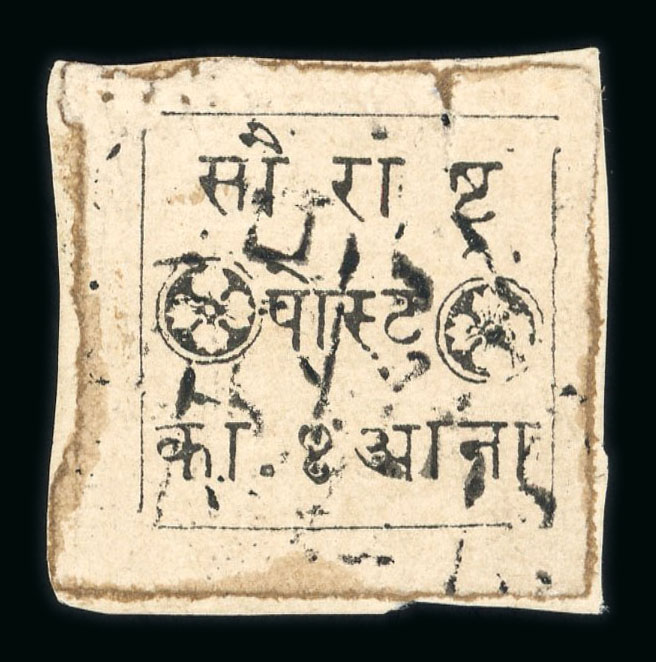 सौ रा ष्ट
पोस्ट
को. १ आना